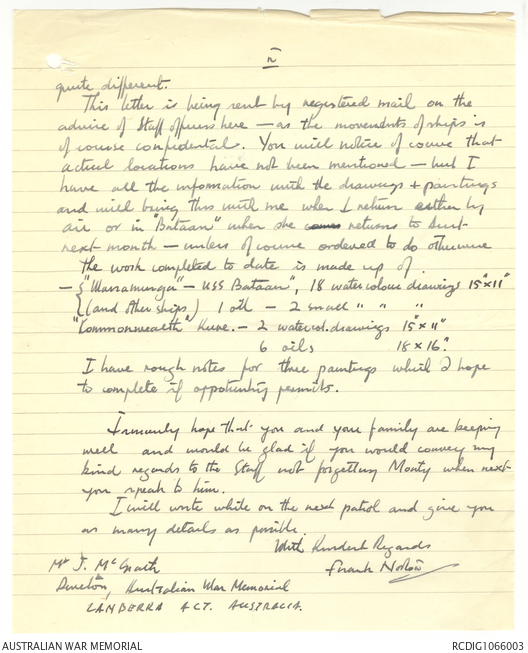 IV
quite different.
This letter is being sent by registered mail on the
advice of Staff officers here — as the movements of ships is
of course confidential. You will notice of course that
actual locations have not been mentioned — but I
have all the information with the drawings & paintings
and will bring this with me when I return either by
air or in "Bataan" when she comes returns to
next month — unless of course ordered to do otherwise
the work completed to date is made up of.
— { "Warramunga" — USS Bataan", 18 watercolour drawings 15"x11"
{ (and other ships) 1 oil — 2 small " " "
"Commonwealth" Kure. — 2 watercol. drawings 15"x11"
6 oils 18x16"
I have rough notes for three paintings which I hope
to complete if opportunity permits.
I sincerely hope that you and your family are keeping
well and would be glad if you would convey my
kind regards to the Staff not forgetting Monty when next
you speak to him.
I will write while on the next patrol and give you
as many details as possible.
With Kindest Regards
Frank Norton
Mr J. McGrath
Director, Australian War Memorial
CANBERRA ACT. AUSTRALIA.
AUSTRALIAN WAR MEMORIAL
RCDIG1066003